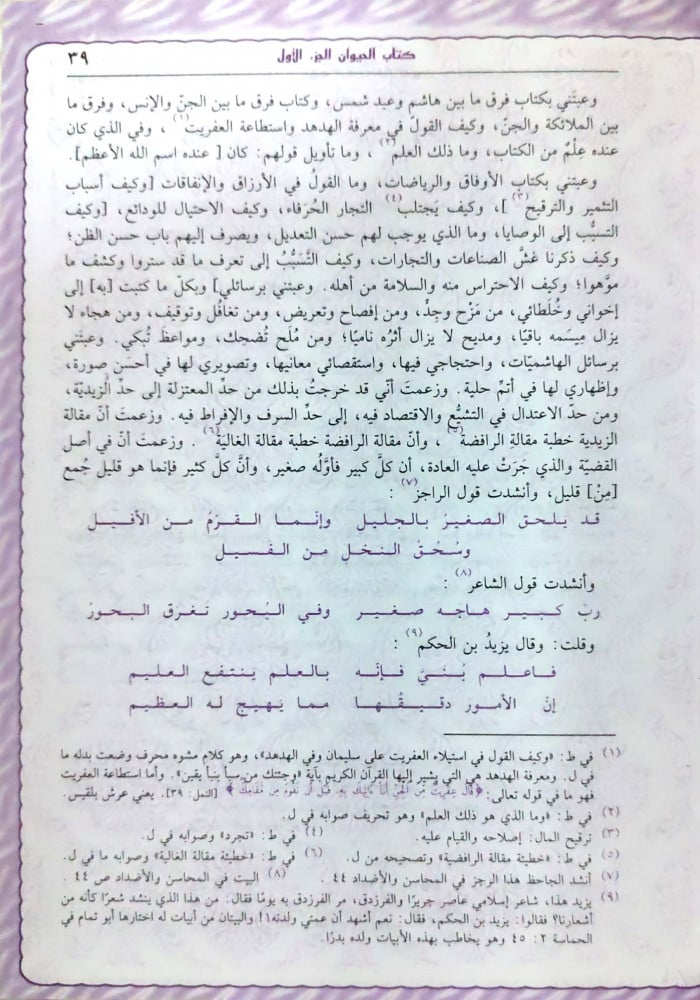 كتاب الحيوان الجزء الأول ٣٩
وعبتَني بكتاب فرق ما بين هاشم وعبد شمس، وكتاب فرق ما بين الجنّ والإنس، وفرق ما
بين الملائكة والجنّ، وكيف القولَ في معرفة الهدهد واستطاعة العفريت(١) ، وفي الذي كان
عنده عِلْمٌ من الكتاب، وما ذلك العلم(٢) ، وما تأويل قولهم: كان [ عنده اسم الله الأعظم].
وعبتني بكتاب الأوفاق والرياضات، وما القولُ في الأرزاق والإنفاقات [وكيف أسباب
التثمير والترقيح(٣) ]، وكيف يَجتلب(٤) التجار الحُرَفاء، وكيف الاحتيال للودائع، [وكيف
التسبُّب إلى الوصايا، وما الذي يوجب لهم حسن التعديل، ويصرف إليهم باب حسن الظن؛
وكيف ذكرنا غشَّ الصناعات والتجارات، وكيف التَّسَبُّبُ إلى تعرف ما قد ستروا وكشف ما
موَّهوا؛ وكيف الاحتراس منه والسلامة من أهله. وعبتني برسائلي] وبكلّ ما كتبت [به] إلى
إخواني وخُلَطائي، من مَزْح وجِدٍّ، ومن إفصاح وتعريض، ومن تغافُل وتوقيف، ومن هجاء لا
يزال مِيسَمه باقيًا، ومديح لا يزال أثرُه ناميًا؛ ومن مُلَح تُضحِك، ومواعظَ تُبكي. وعبتَني
برسائل الهاشميّات، واحتجاجي فيها، واستقصائي معانيها، وتصويري لها في أحسن صورة،
وإظهاري لها في أتمِّ حلية. وزعمتَ أنّي قد خرجتُ بذلك من حدّ المعتزلة إلى حدِّ الزيديّة،
ومن حدّ الاعتدال في التشيُّع والاقتصاد فيه، إلى حدِّ السرف والإفراط فيه. وزعمتَ أنّ مقالة
الزيدية خطبة مقالةِ الرافضة(٥) ، وأنّ مقالة الرافضة خطبة مقالة الغالية(٦) . وزعمتَ أنّ في أصل
القضيّة والذي جَرَتْ عليه العادة، أن كلَّ كبير فأوّلُه صغير، وأنَّ كلَّ كثير فإنما هو قليل جُمع
[مِنْ] قليل، وأنشدت قول الراجز(٧) :
قد يلحق الصغيرُ بالجليل وإنّما القَرْمُ من الأفيل
وسُحُقُ النخل من الفَسيل
وأنشدت قول الشاعر(٨) :
ربّ كبيرٍ هاجه صغير وفي البُحور تَغرَق البحورُ
وقلت: وقال يزيدُ بن الحكم(٩) :
فاعلم بُنيَّ فإنّه بالعلم ينتفع العليم
إنّ الأمور دقيقُها مما يَهيج له العظيم
(١) في ط: «وكيف القول في استيلاء العفريت على سليمان وفي الهدهد»، وهو كلام مشوه محرف وضعت بدله ما
في ل. ومعرفة الهدهد هي التي يشير إليها القرآن الكريم بآية «وجئتك من سبأ بنبأ يقين». وأما استطاعة العفريت
فهو ما في قوله تعالى: ﴿قَالَ عِفْرِيتٌ مِّنَ الْجِنِّ أَنَا آتِيكَ بِهِ قَبْلَ أَن تَقُومَ مِن مَّقَامِكَ﴾ [النمل: ٣٩]. يعني عرش بلقيس.
(٢) في ط: «وما الذي هو ذلك العلم» وهو تحريف صوابه في ل.
(٣) ترقيح المال: إصلاحه والقيام عليه. (٤) في ط: «تجرد» وصوابه في ل.
(٥) في ط: «خطيئة مقالة الرافضية» وتصحيحه من ل. (٦) في ط: «خطيئة مقالة الغالية» وصوابه ما في ل.
(٧) أنشد الجاحظ هذا الرجز في المحاسن والأضداد ٤٤. (٨) البيت في المحاسن والأضداد ص ٤٤.
(٩) يزيد هذا، شاعر إسلامي عاصر جريرًا والفرزدق، مر الفرزدق به يومًا فقال: من هذا الذي ينشد شعرًا كأنه من
أشعارنا؟ فقالوا: يزيد بن الحكم، فقال: نعم أشهد أن عمتي ولدته!! والبيتان من أبيات له اختارها أبو تمام في
الحماسة ٢: ٤٥ وهو يخاطب بهذه الأبيات ولده بدرًا.